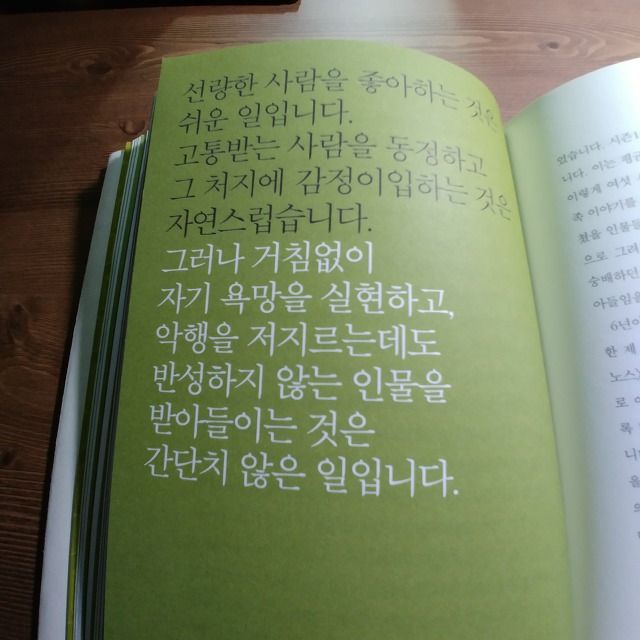 선량한 사람을 좋아하는 것은
쉬운 일입니다.
고통받는 사람을 동경하고
그 처지에 감정이입하는 것은
자연스럽습니다.
그러나 거침없이
자기 욕망을 실현하고,
악행을 저지르는데도
반성하지 않는 인물을
받아들이는 것은
간단치 않은 일입니다.
있습니다. 시즌
니다. 너는 캘리
이렇게 여섯
족 이야기를
쳤을 인물들
으로 그려
숭배하던
아들임
6년이
한 제
노스
로 어
록
니
을
로